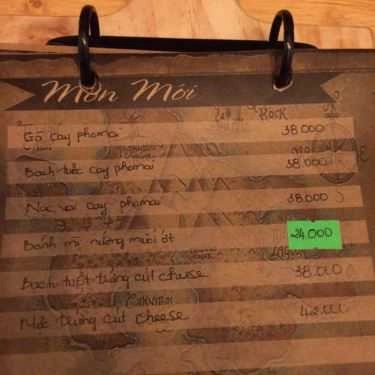 Món Mới
Gà cay phomai 38.000
Bạch tuộc cay phomai 38.000
cay phomai 38.000
Bánh mì nướng muối ớt 24.000
Bạch tuộc trứng cút cheese 38.000
trứng cút cheese